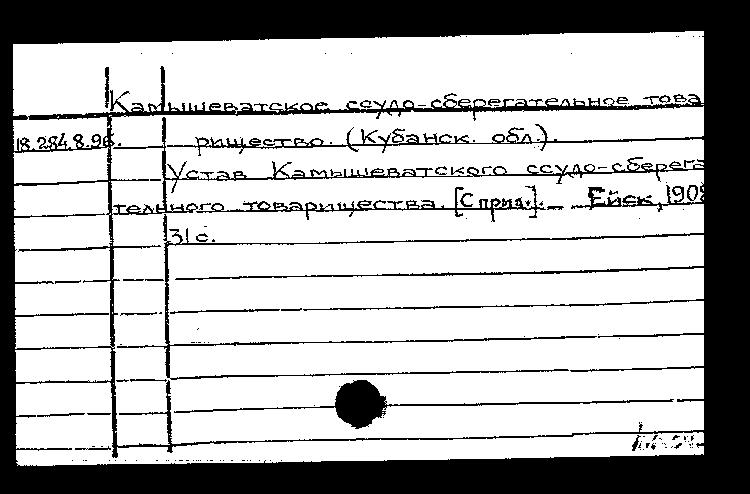 Камышеватское ссудо-сберегательное това
18.284.8.96. рищество. (Кубанск. обл.).
Устав Камышеватского ссудо-сберега
тельного товарищества. [С прил.]. — Ейск, 1908
31 с.